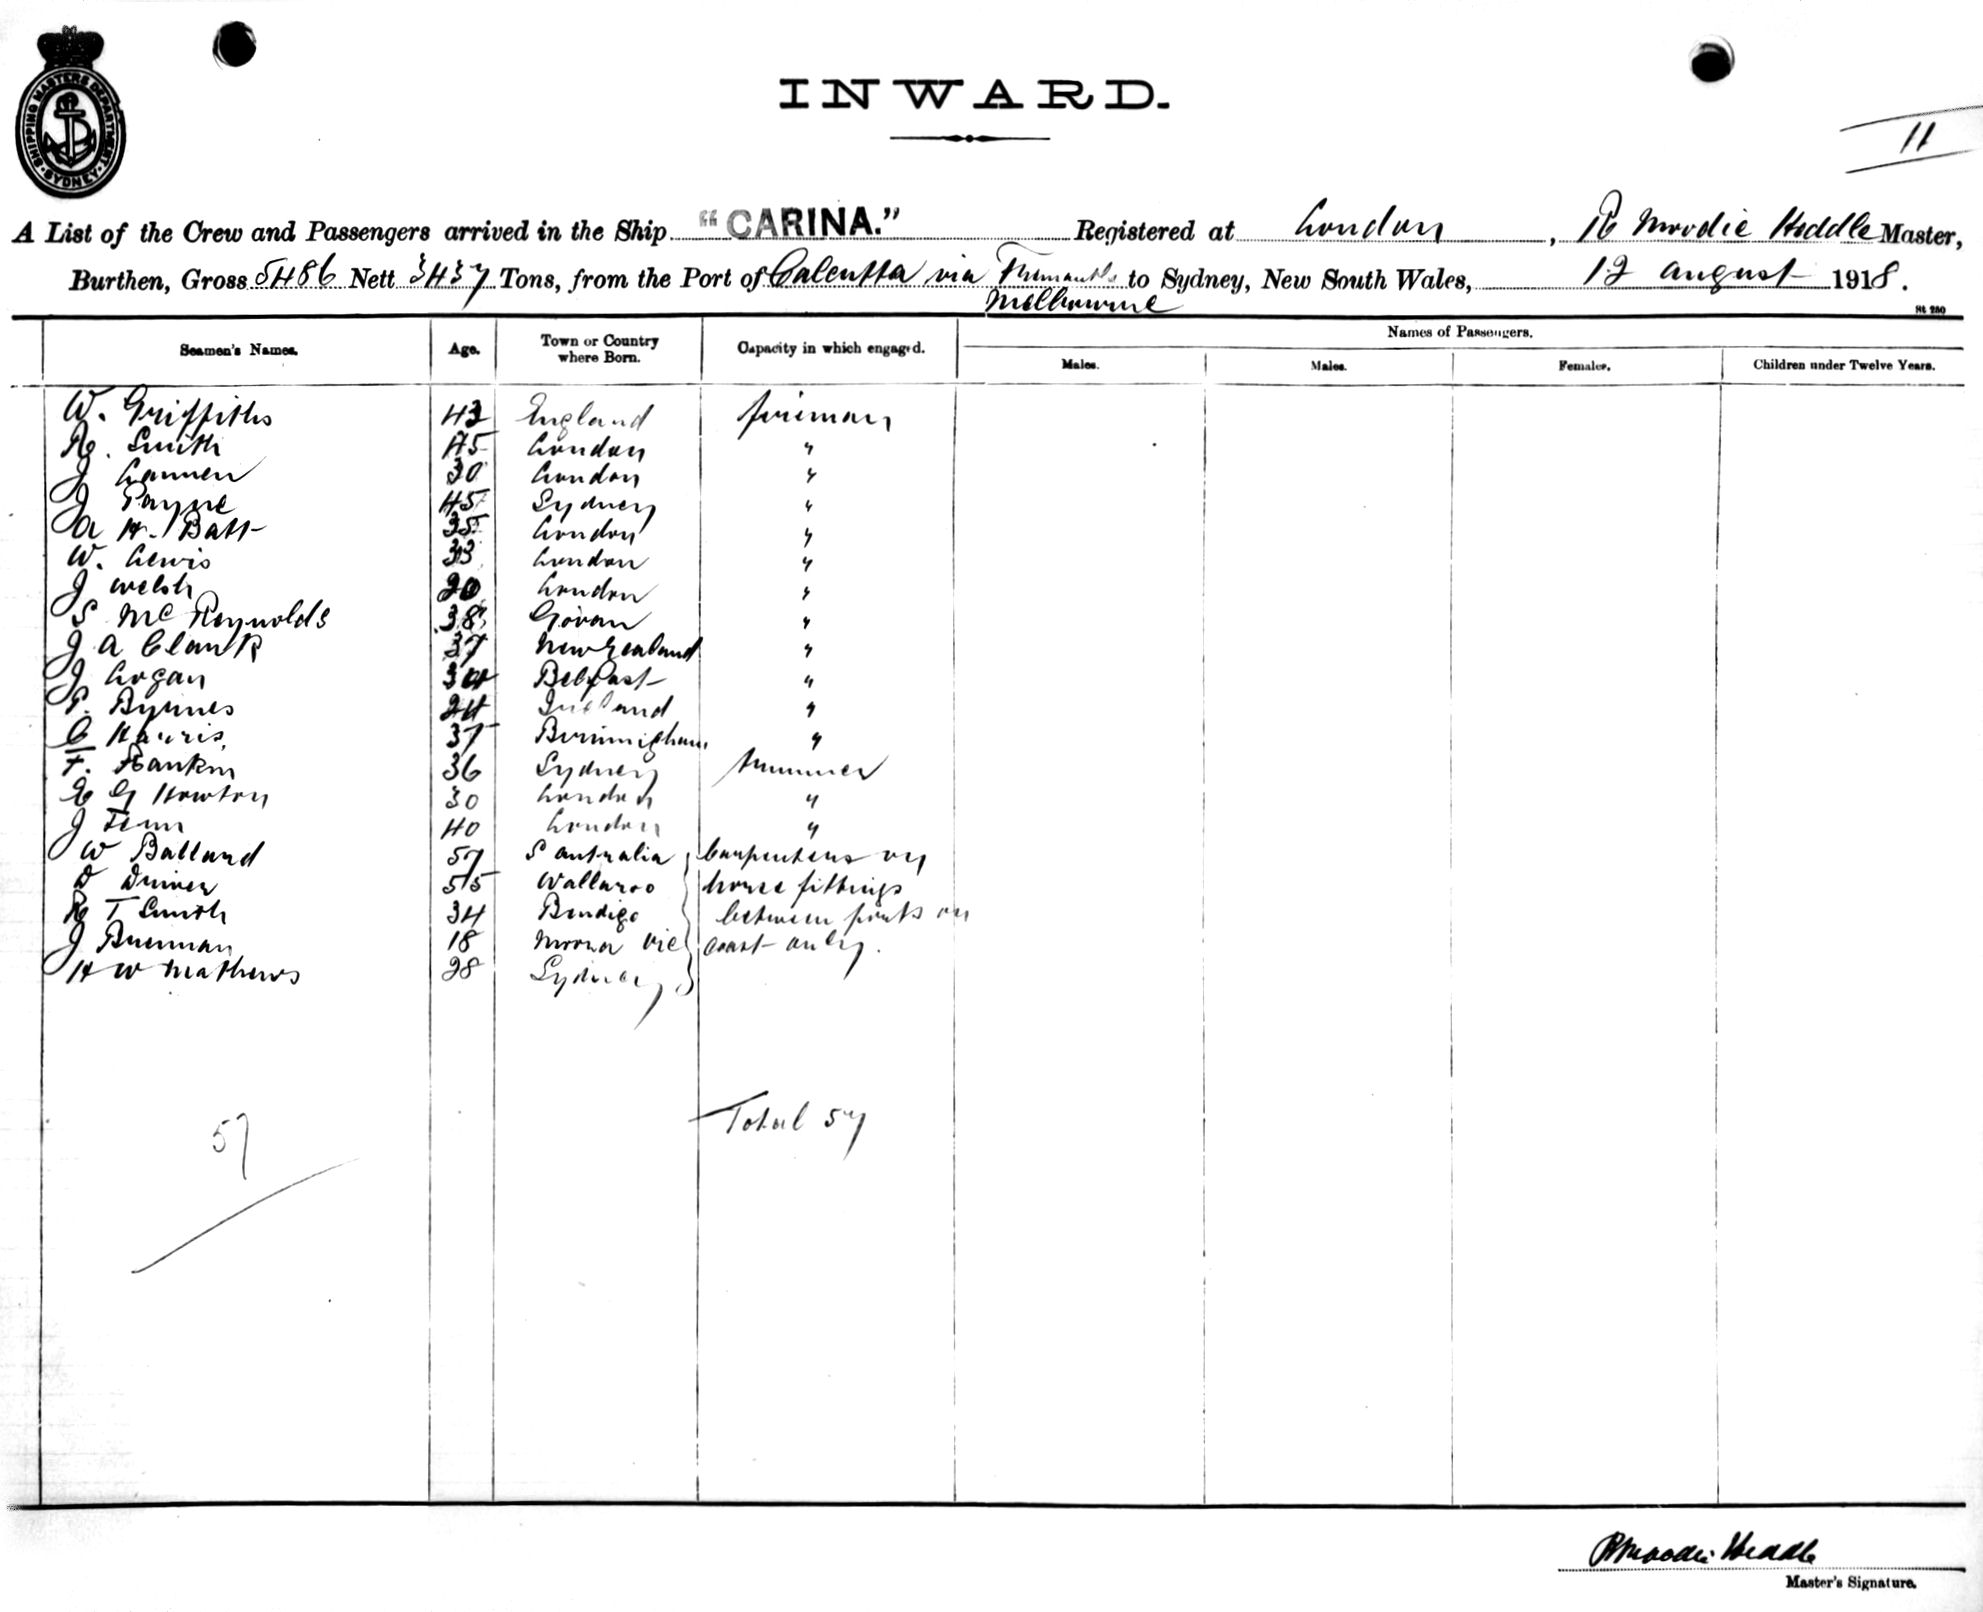 SHIPPING MASTERS DEPARTMENT
SYDNEY
INWARD.
11
A List of the Crew and Passengers arrived in the Ship "CARINA." Registered at London, R Moodie Heddle Master,
Burthen, Gross 5486 Nett 3437 Tons, from the Port of Calcutta via Fremantle to Sydney, New South Wales, 12 August 1918.
Melbourne
St 280
Names of Passengers.
Seamen's Names. Age. Town or Country where Born. Capacity in which engaged. Males. Males. Females. Children under Twelve Years.
W. Griffiths 43 England fireman
R. Smith 45 London "
J Lannen 30 London "
J Payne 45 Sydney "
A H. Batt 35 London "
W. Lewis 33 London "
J Welsh 20 London "
S McReynolds 38 Govan "
J A Clark 37 New Zealand "
J Logan 34 Belfast "
P. Byrnes 24 Ireland "
C Harris 37 Birmingham "
F. Rankin 36 Sydney trimmer
E G Howton 30 London "
J Fenn 40 London "
W Balland 57 S Australia Carpenters on
D Driver 55 Wallaroo horse fittings
R T Smith 34 Bendigo between ports on
J Brennan 18 Vic coast only.
H W Mathews 28 Sydney
Total 57
57
R Moodie Heddle
Master's Signature.